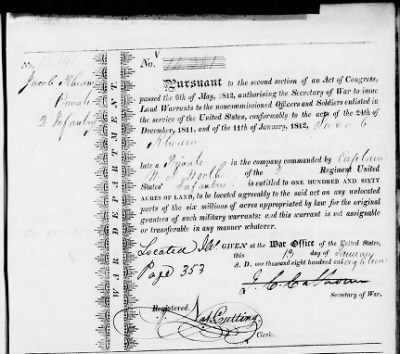 No.
Jacob Ahearn
Private
2 Infantry
WAR DEPARTMENT.
V
No.
Pursuant to the second section of an Act of Congress,
passed the 6th of May, 1812, authorising the Secretary of War to issue
Land Warrants to the noncommissioned Officers and Soldiers enlisted in
the service of the United States, conformably to the acts of the 24th of
December, 1811, and of the 11th of January, 1812, Jacob
Ahearn
late a Private in the company commanded by Captain
of the 2 Regiment United
States' Infantry is entitled to ONE HUNDRED AND SIXTY
ACRES OF LAND, to be located agreeably to the said act on any unlocated
parts of the six millions of acres appropriated by law for the original
grantees of such military warrants; and this warrant is not assignable
or transferable in any manner whatever.
Located Ills
Page 353
GIVEN at the War Office of the United States,
this 13 day of January
A. D. one thousand eight hundred and eighteen
J. C. Calhoun
Secretary of War.
Registered
Nat Cutting
Clerk.